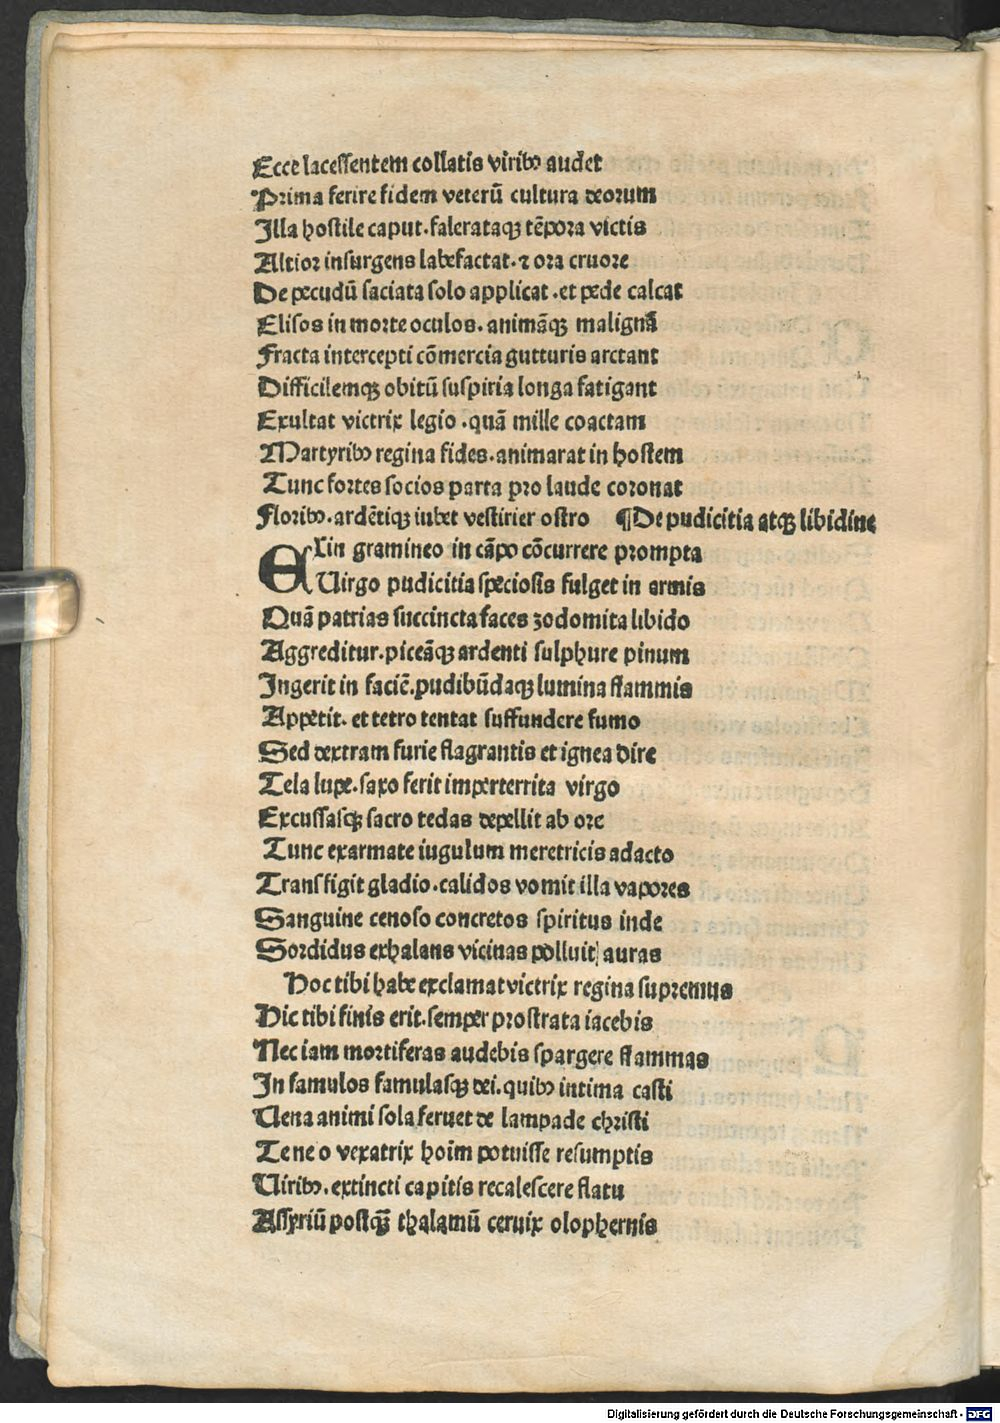 Ecce lacessentem collatis viribꝰ audet
Prima ferire fidem veterū cultura deorum
Illa hostile caput. falerataqꝫ tēpora victis
Altior insurgens labefactat. ⁊ ora cruore
De pecudū saciata solo applicat. et pede calcat
Elisos in morte oculos. animāqꝫ malignā
Fracta intercepti cōmercia gutturis arctant
Difficilemqꝫ obitū suspiria longa fatigant
Exultat victrix legio. quā mille coactam
Martyribꝰ regina fides. animarat in hostem
Tunc fortes socios parta pro laude coronat
Floribꝰ. ardētiqꝫ iubet vestirier ostro ¶De pudicitia atqꝫ libidine
EXin gramineo in cāpo cōcurrere prompta
Uirgo pudicitia speciosis fulget in armis
Quā patrias succincta faces zodomita libido
Aggreditur. piceāqꝫ ardenti sulphure pinum
Ingerit in faciē. pudibūdaqꝫ lumina flammis
Appetit. et tetro tentat suffundere fumo
Sed dextram furie flagrantis et ignea dire
Tela lupe. saxo ferit imperterrita virgo
Excussasqꝫ sacro tedas depellit ab ore
Tunc exarmate iugulum meretricis adacto
Transfigit gladio. calidos vomit illa vapores
Sanguine cenoso concretos spiritus inde
Sordidus exhalans vicinas polluit auras
Hoc tibi habe exclamat victrix regina supremus
Hic tibi finis erit. semper prostrata iacebis
Nec iam mortiferas audebis spargere flammas
In famulos famulasqꝫ dei. quibꝰ intima casti
Uena animi sola feruet de lampade christi
Te ne o vexatrix hoīm potuisse resumptis
Uiribꝰ. extincti capitis recalescere flatu
Assyriū postqꝫ̄ thalamū ceruix olophernis
Digitalisierung gefördert durch die Deutsche Forschungsgemeinschaft - DFG